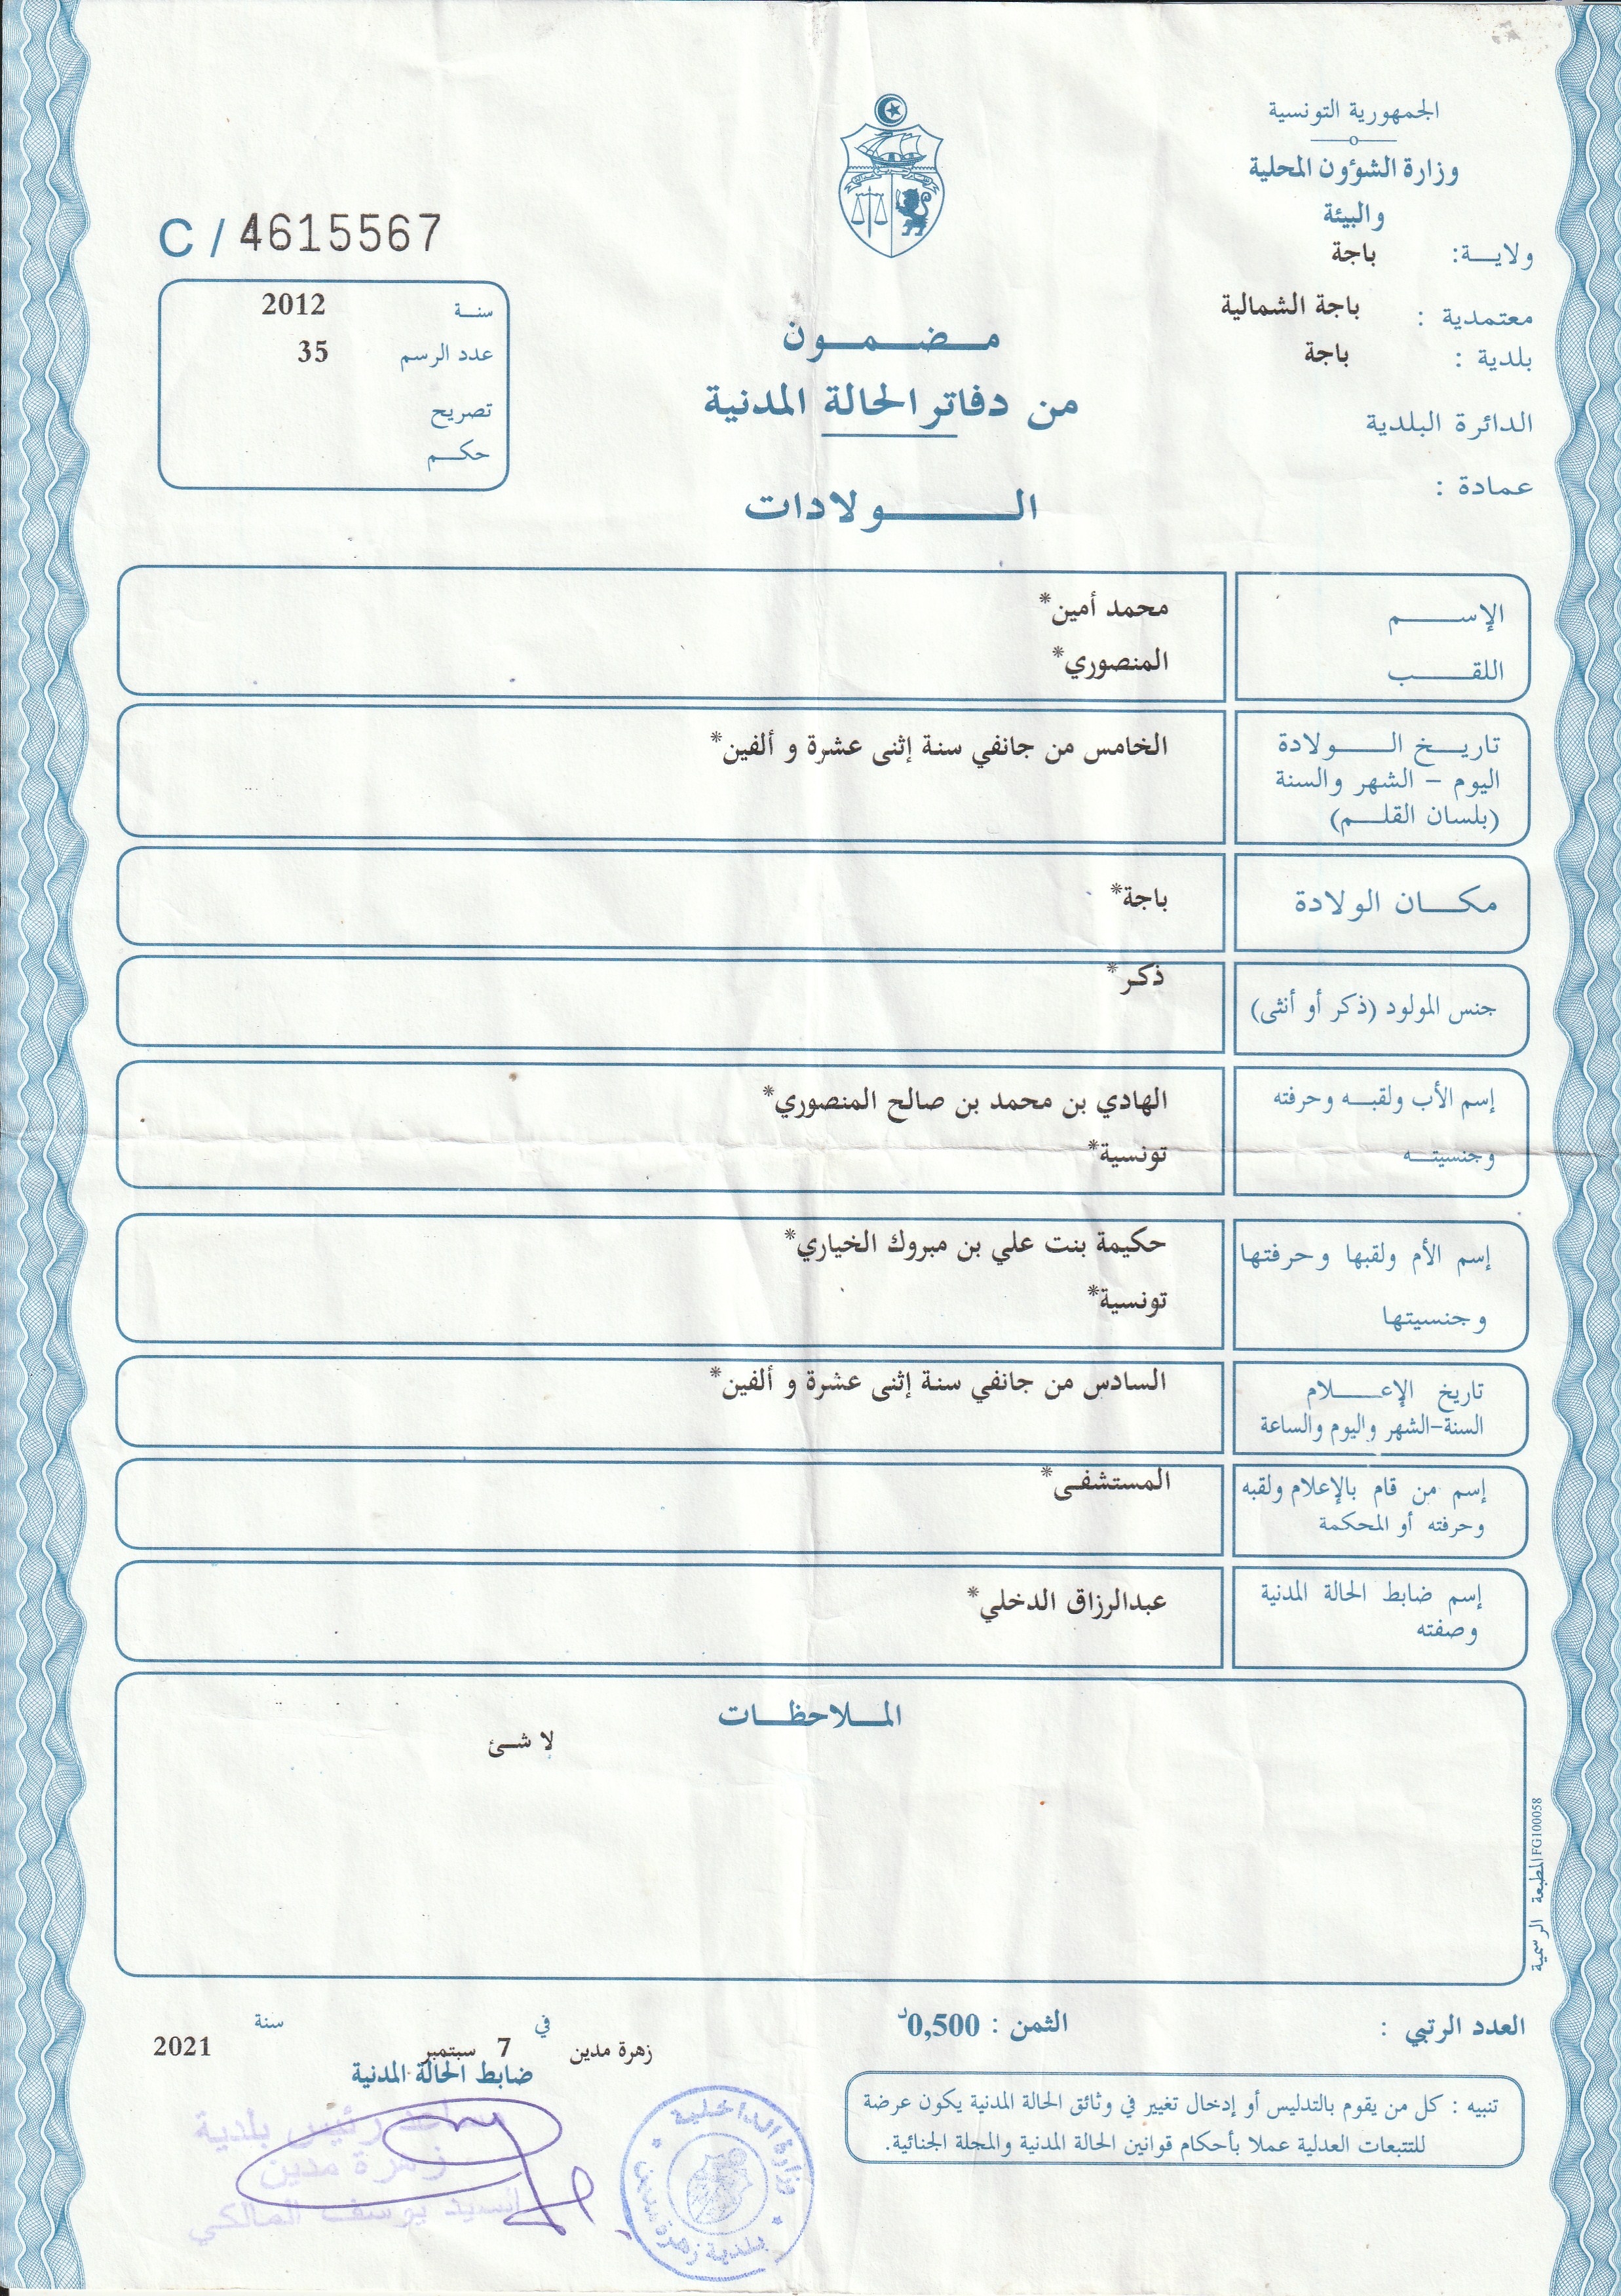 الجمهورية التونسية
وزارة الشؤون المحلية
والبيئة
ولايـــة: باجة
معتمدية : باجة الشمالية
بلدية : باجة
الدائرة البلدية
عمادة :
مـــضـــمـــون
من دفاتر الحالة المدنية
الـــــــولادات
C / 4615567
سنــة 2012
عدد الرسم 35
تصريح
حكـــم
الإســـــــم محمد أمين*
اللقـــــب المنصوري*
تاريـــخ الـــــولادة الخامس من جانفي سنة إثنى عشرة و ألفين*
اليوم – الشهر والسنة
(بلسان القلـــم)
مكـــان الولادة باجة*
جنس المولود (ذكر أو أنثى) ذكر*
إسم الأب ولقبــه وحرفته الهادي بن محمد بن صالح المنصوري*
وجنسيتـــه تونسية*
إسم الأم ولقبها وحرفتها حكيمة بنت علي بن مبروك الخياري*
وجنسيتها تونسية*
تاريخ الإعـــــلام السادس من جانفي سنة إثنى عشرة و ألفين*
السنة-الشهر واليوم والساعة
إسم من قام بالإعلام ولقبه المستشفى*
وحرفته أو المحكمة
إسم ضابط الحالة المدنية عبدالرزاق الدخلي*
وصفته
الملاحظـــات
لا شئ
المطبعة الرسمية FG100058
العدد الرتبي :
الثمن : 0,500د
تنبيه : كل من يقوم بالتدليس أو إدخال تغيير في وثائق الحالة المدنية يكون عرضة
للتتبعات العدلية عملا بأحكام قوانين الحالة المدنية والمجلة الجنائية.
زهرة مدين في 7 سبتمبر سنة 2021
ضابط الحالة المدنية
رئيس بلدية
زهرة مدين
السيد يوسف المالكي
وزارة الداخلية
بلدية زهرة مدين